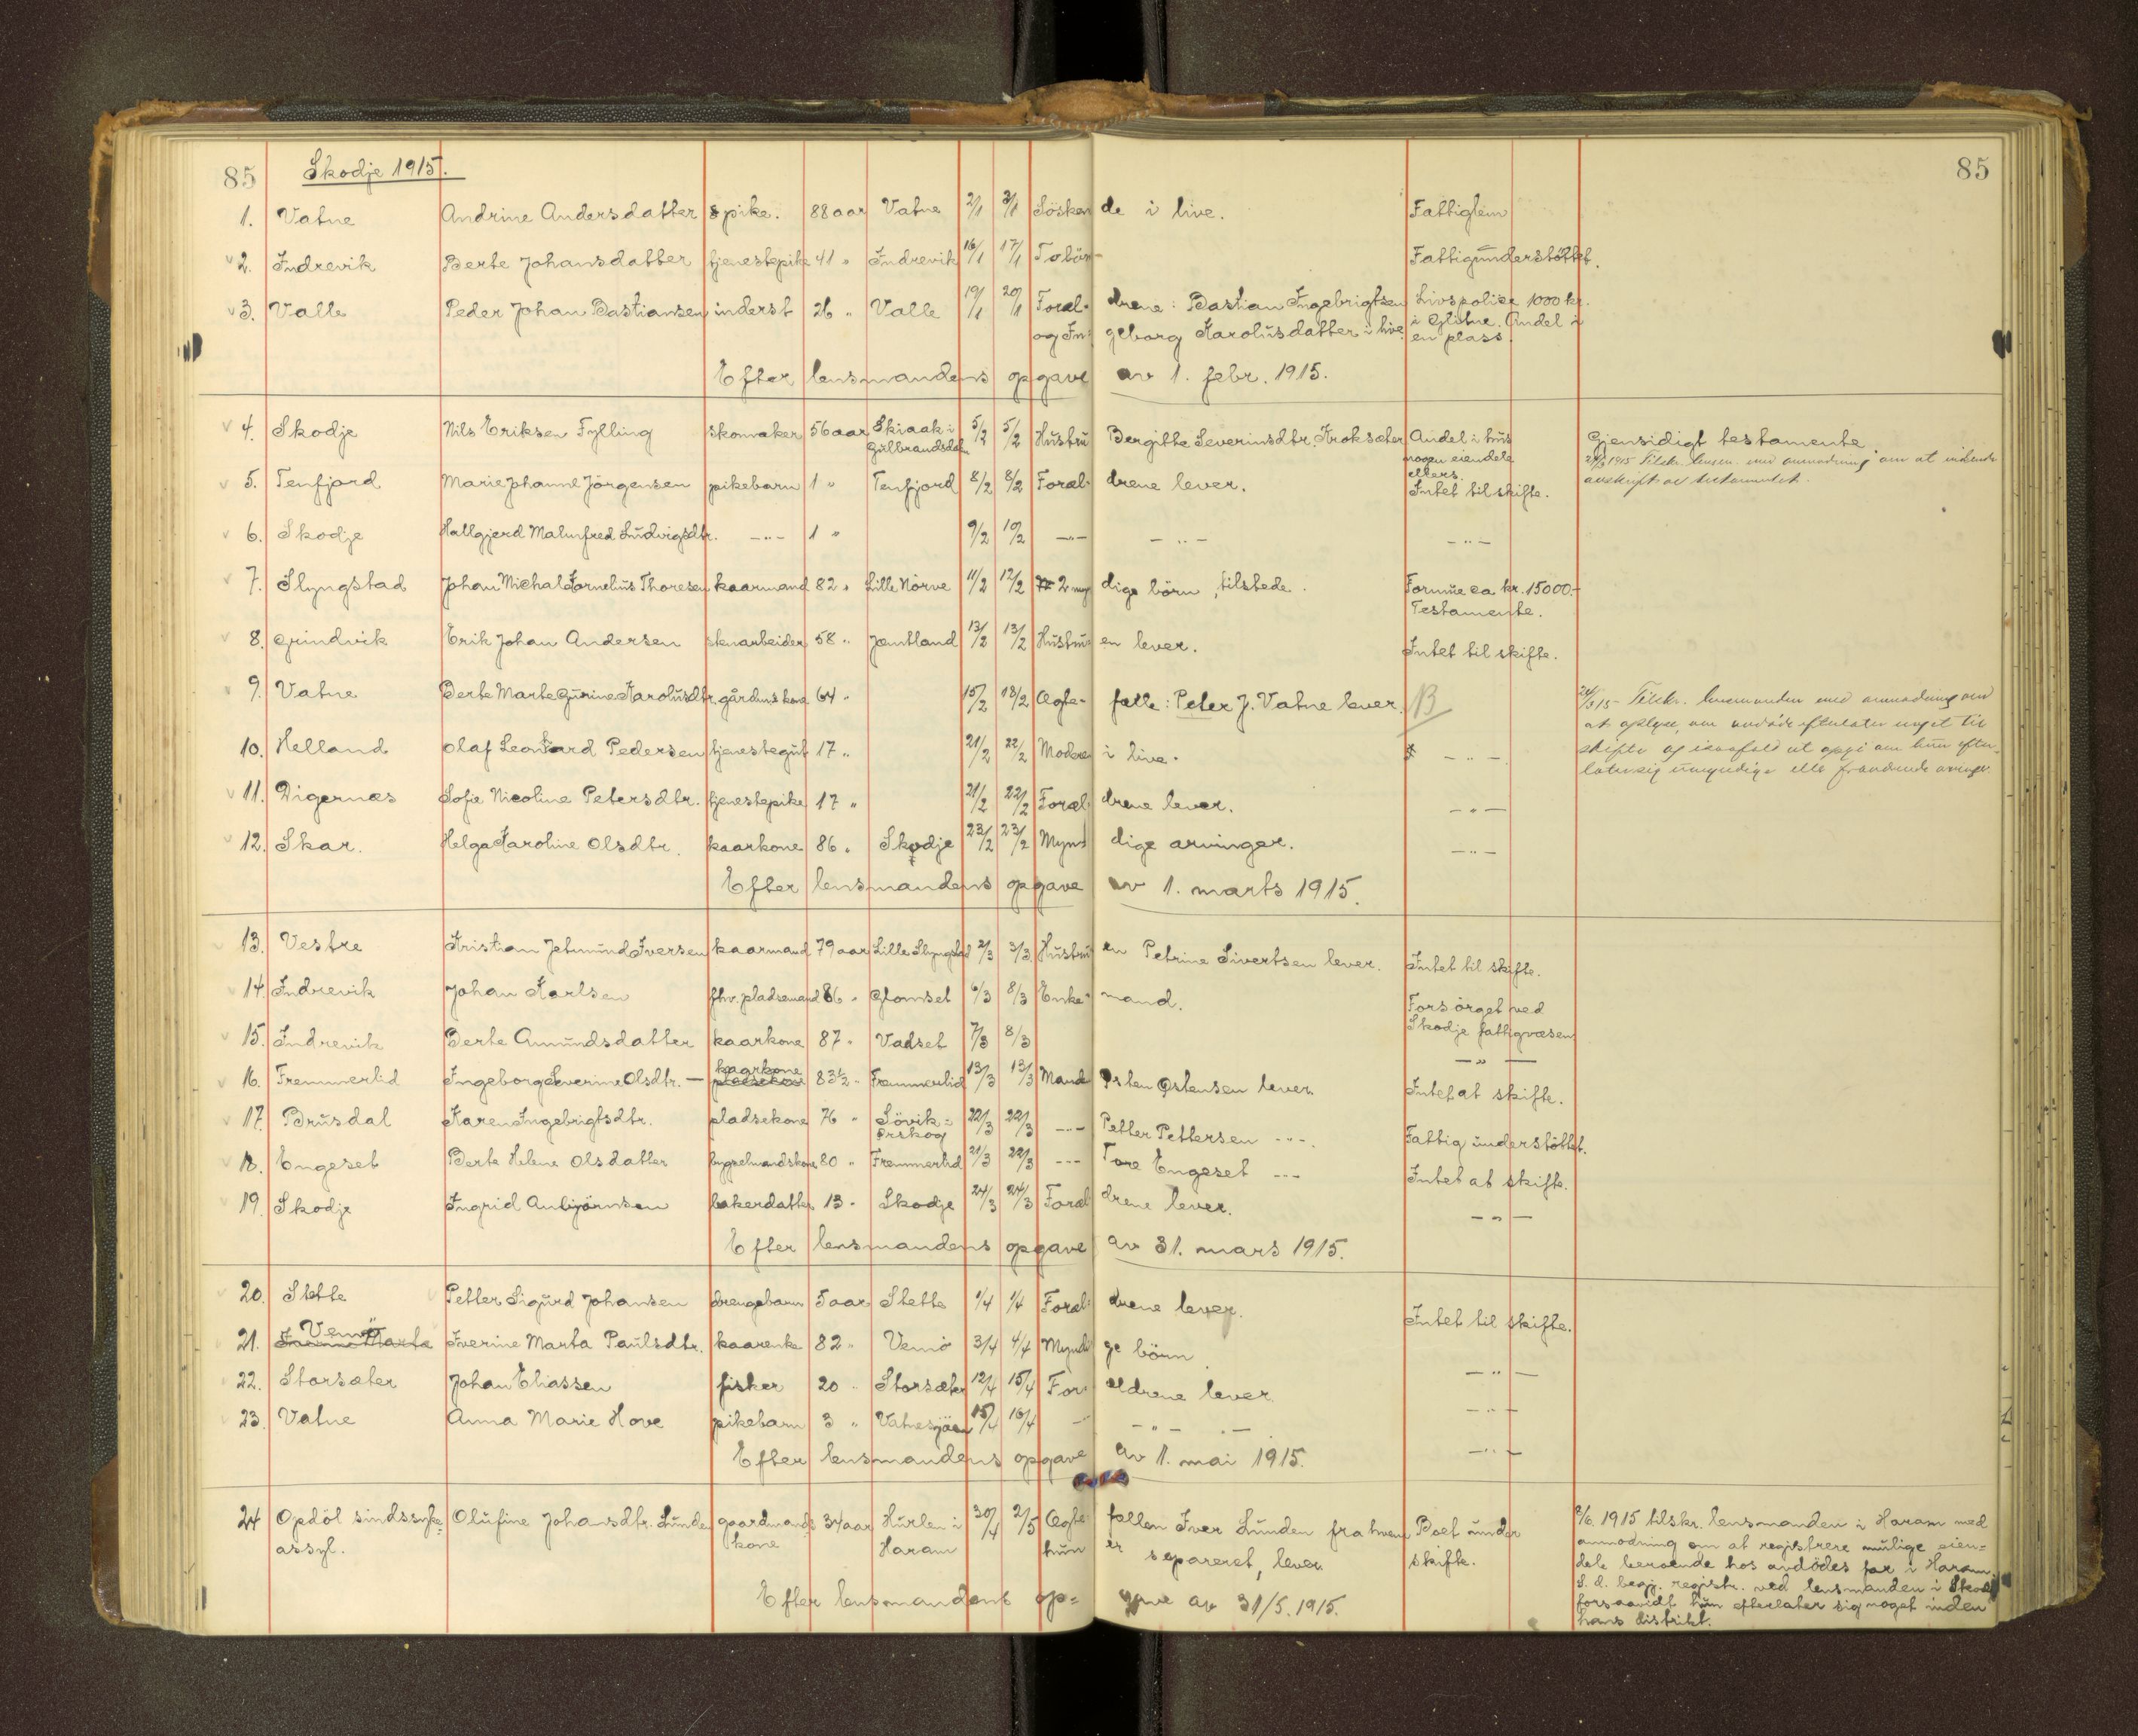 85 Skodje 1915. 85
1. Vatne Andrine Andersdatter pike. 88 aar Vatne 2/1 3/1 Sösken de i live. Fattiglem
2. Indrevik Berte Johansdatter tjenestepike 41 " Indrevik 16/1 17/1 Fattigunderstöttet.
3. Valle Peder Johan Bastiansen inderst 26 " Valle 19/1 20/1 Foræl- drene: Bastian Ingebrigtsen Livspolice 1000 kr.
og In- geborg Karolusdatter i live i Glitne. Andel i
en plass.
Efter lensmandens opgave av 1. febr. 1915.
4. Skodje Nils Eriksen Fylling skomaker 56 aar Skiaak i 5/2 5/2 Hustru Bergitte Severinsdtr. Kroksæter Andel i hus Gjensidigt testamente.
Gulbrandsdalen nogen eiendele 1915 Tilskr. lensm. med anmodning om at indsende
ellers. avskrift av testamentet.
5. Tenfjord Marie Johanne Jörgensen pikebarn 1 " Tenfjord 8/2 8/2 Foræl- drene lever. Intet til skifte.
6. Skodje Hallgjerd Malmfred Ludvigsdtr. -"- 1 " 9/2 10/2 -"- -"- -"-
7. Slyngstad Johan Michal Kornelius Thoresen kaarmand 82 " Lille Nörve 11/2 12/2 2 myn dige börn, tilstede. Formue ca kr. 15000.-
Testamente.
8. Grindvik Erik Johan Andersen stenarbeider 58 " Jæmtland 13/2 13/2 Hustru- en lever. Intet til skifte.
9. Vatne Berte Marte Gurine Karolusdtr. gårdms kone 64 " 15/2 18/2 Ægte- fælle: Peter J. Vatne lever. B 24/3 15 Tilskr. lensmanden med anmodning om
at oplyse, om avdöde efterlater noget til
10. Helland Olaf Leonard Pedersen tjenestegut 17 " 21/2 22/2 Moderen i live. -"- skifte og isaafald at opgi om hun efter-
later sig umyndige eller fraværende arvinger.
11. Digernæs Sofie Nicoline Petersdtr. tjenestepike 17 " 21/2 22/2 Foræl- drene lever. -"-
12. Skar. Helga Karoline Olsdtr. kaarkone 86 " Skodje 23/2 23/2 Myn- dige arvinger. -"-
Efter lensmandens opgave av 1. marts 1915.
13. Vestre Kristian Jetmund Iversen kaarmand 79 aar Lille Slyngstad 2/3 3/3 Hustru en Petrine Sivertsen lever. Intet til skifte.
14. Indrevik Johan Karlsen fhv. pladsemand 86 " Glomset 6/3 8/3 Enke- mand. Forsörget ved
Skodje fattigvæsen
15. Indrevik Berte Amundsdatter kaarkone 87 " Vadset 7/3 8/3 -"-
16. Fremmerlid Ingeborg Severine Olsdtr. - kaarkone 83½ " Fremmerlid 13/3 13/3 Mand Østen Østensen lever. Intet at skifte.
17. Brusdal Karen Ingebrigtsdtr. pladsekone 76 " Sövik i 22/3 22/3 -"- Petter Pettersen -"-. Fattig understöttet.
Örskog
18. Engeset Berte Helene Olsdatter bygselmandskone 80 " Fremmerlid 21/3 22/3 -"- Tore Engeset -"- Intet at skifte.
19. Skodje Ingrid Anbjörnsen bakerdatter 13 " Skodje 24/3 24/3 Foræl drene lever. -"-
Efter lensmandens opgave av 31. mars 1915.
20. Stette Petter Sigurd Johansen drengebarn 5 aar Stette 1/4 1/4 Foræl- drene lever. Intet til skifte.
21. Vemö Iverine Marta Paulsdtr. kaarenke 82 " Vemö 3/4 4/4 Myndi ge börn -"-
22. Storsæter Johan Eliassen fisker 20 " Storsæter 12/4 15/4 For- ældrene lever. -"-
23. Vatne Anna Marie Hove pikebarn 3 " Vatnesjöen 15/4 16/4 -"- -"- -"- -"-
Efter lensmandens opgave av 1. mai 1915.
24 Opdöl sindssyke- Olufine Johansdtr. Lunden gaardmands 34 aar Hurlen i 30/4 2/5 Ægte- fællen Iver Lunden fra hvem Boet under 2/6. 1915 tilskr. lensmanden i Haram med
assyl. kone Haram hun er separeret, lever. skifte. anmodning om at registrere mulige eien-
dele beroende hos avdödes far i Haram.
S. d. begj. registr. ved lensmanden i Skodje
Efter lensmandens op- gave av 31/5. 1915. forsaavidt hun efterlater sig noget inden
hans distrikt.